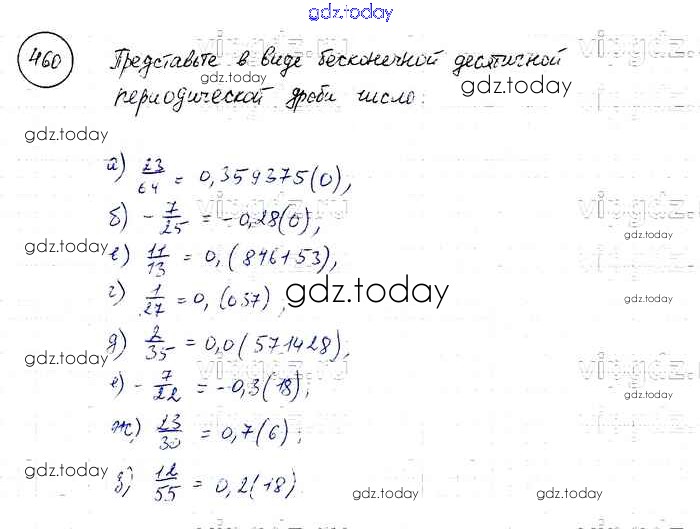 gdz.today
460 Представьте в виде бесконечной десятичной
gdz.today gdz.today
периодической дроби число:
gdz.today
gdz.today
а) 23/64 = 0,359375(0),
б) - 7/25 = -0,28(0),
gdz.today gdz.today
в) 11/13 = 0,(846153),
г) 1/27 = 0,(037),
gdz.today
д) 2/35 = 0,0(571428),
gdz.today gdz.today
е) - 7/22 = -0,3(18);
gdz.today
ж) 23/30 = 0,7(6);
gdz.today
з) 12/55 = 0,2(18)
gdz.today gdz.today